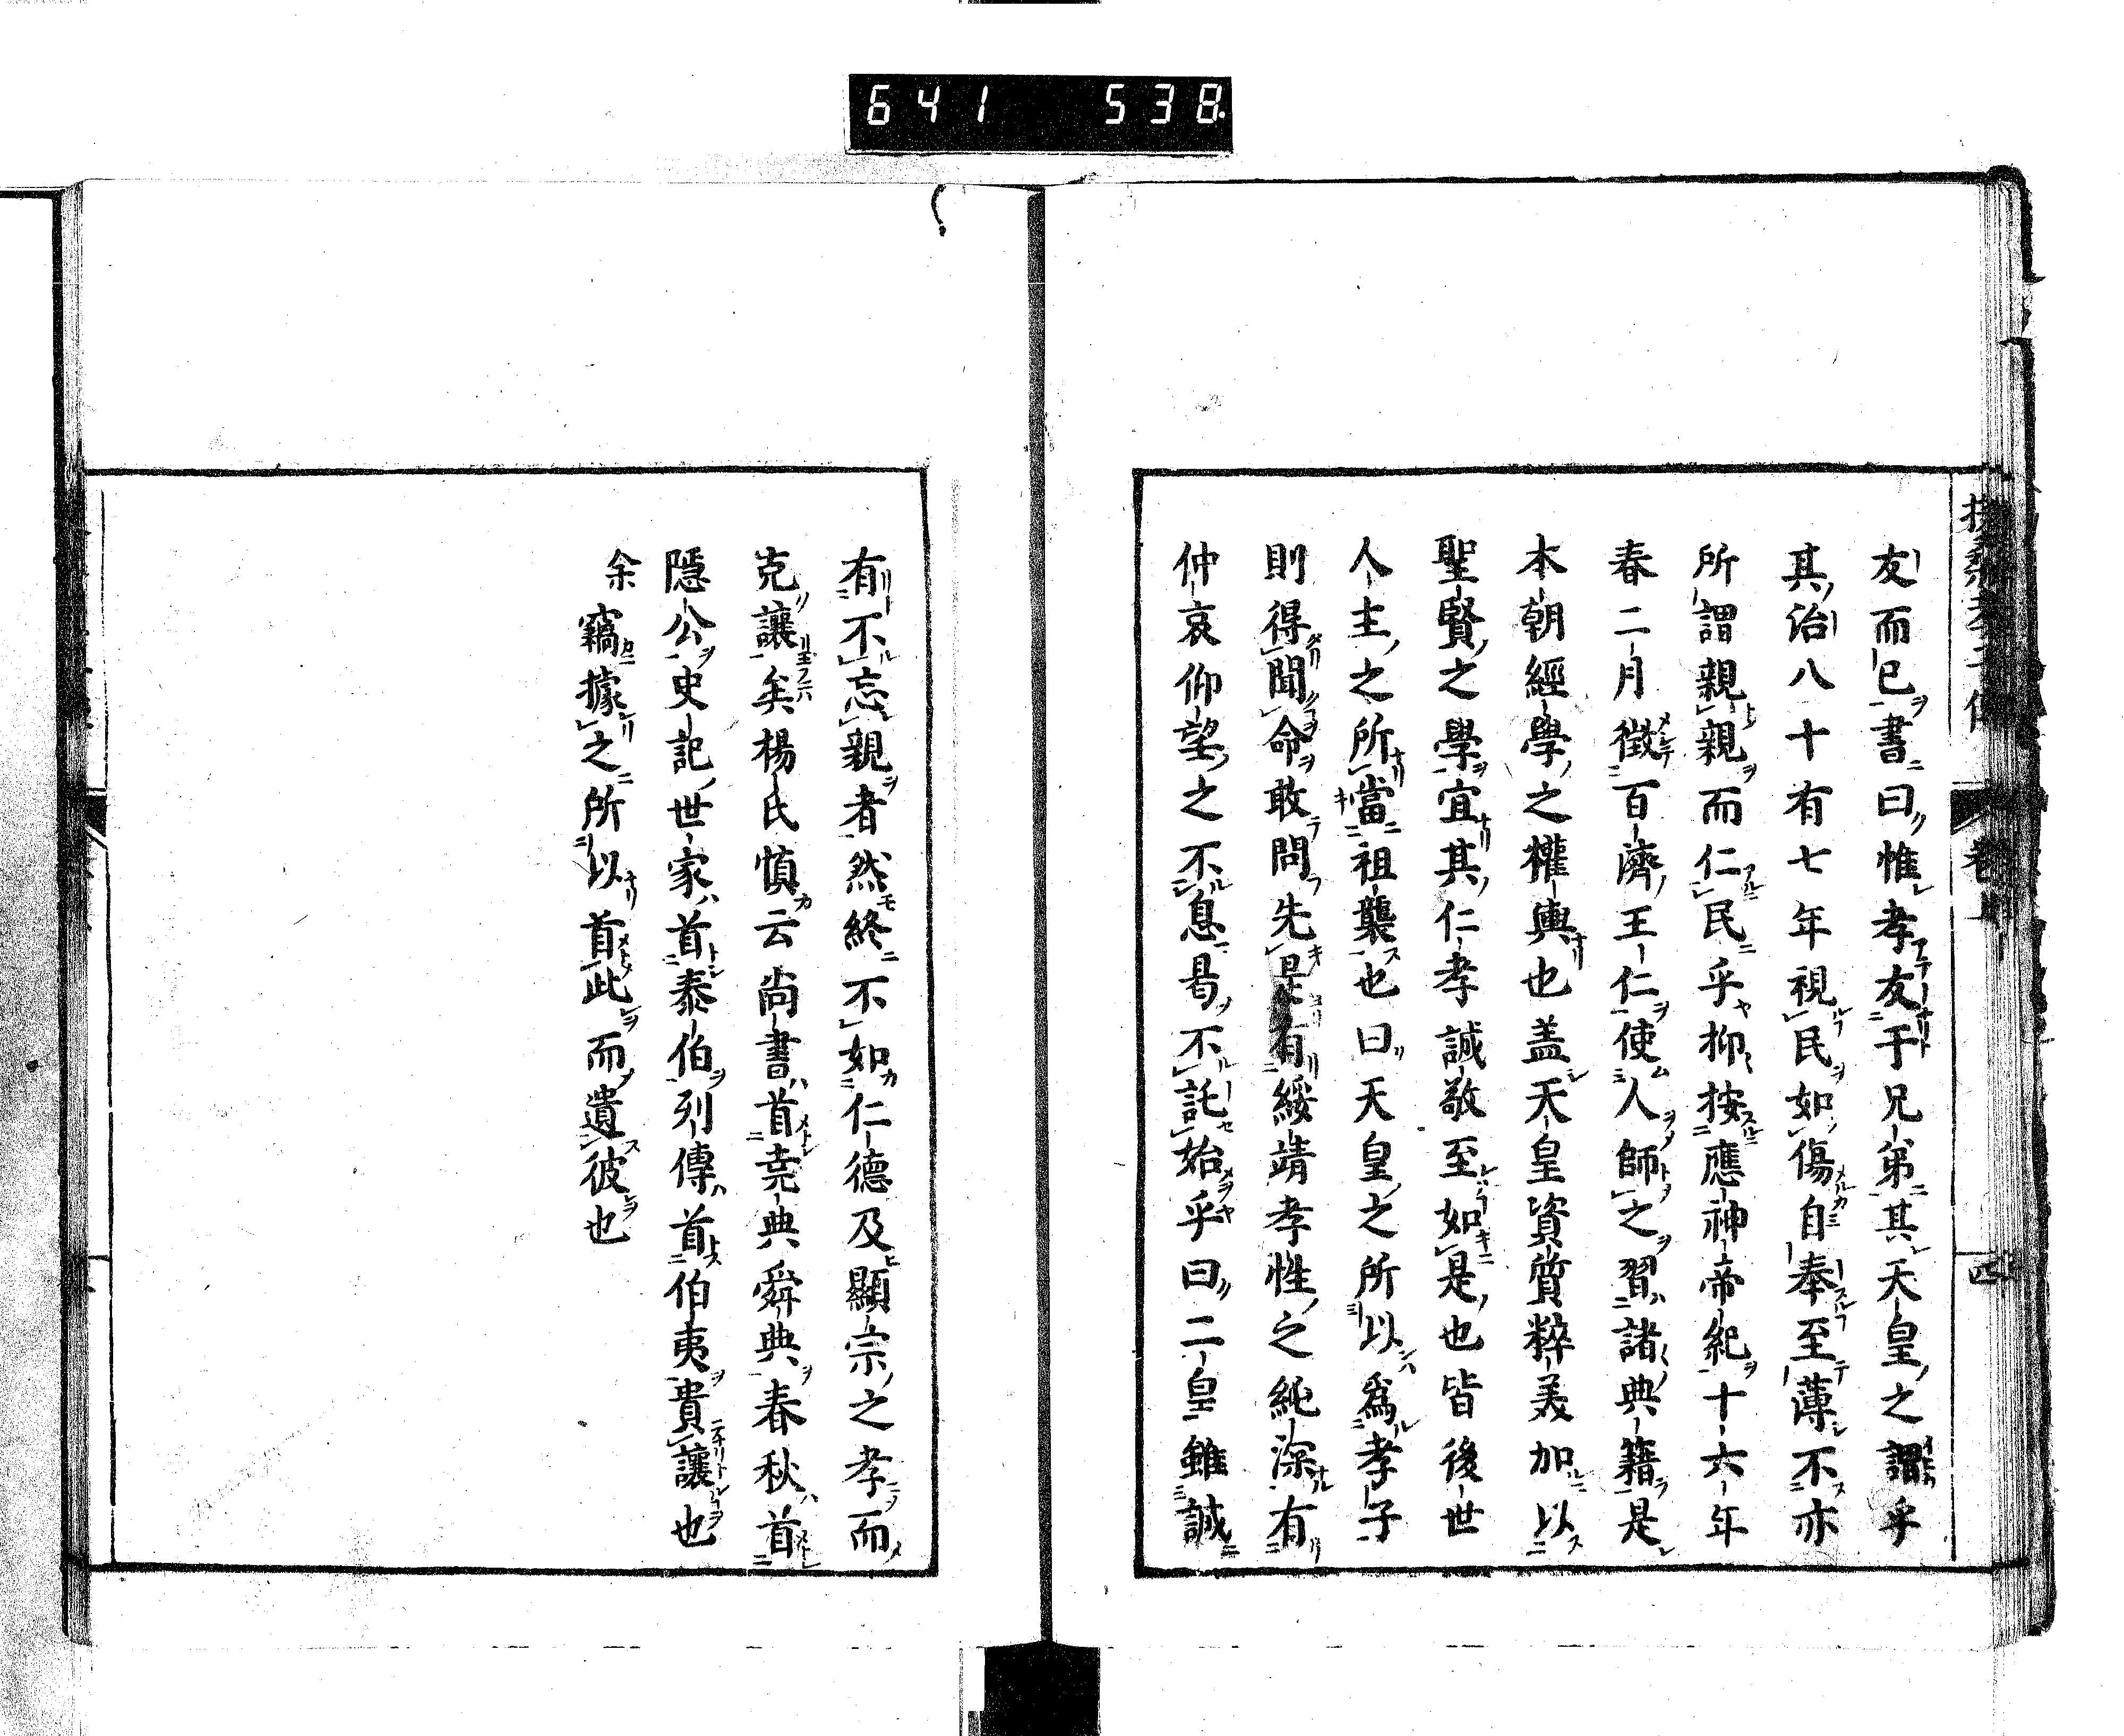 641 538.
友而已書曰惟孝友于兄弟其天皇之謂乎
其治八十有七年視民如傷自奉至薄不亦
所謂親親而仁民乎抑按應神帝紀十六年
春二月徴百濟王仁使人師之習諸典籍是
本朝經學之權輿也盖天皇資質粹美加以
聖賢之學宜其仁孝誠敬至如是也皆後世
人主之所當祖襲也曰天皇之所以爲孝子
則得聞命敢問先是有綏靖孝性之純深有
仲哀仰望之不息曷不託始乎曰二皇雖誠
有不忘親者然終不如仁德及顯宗之孝而
克讓矣楊氏慎云尚書首尭典舜典春秋首
隱公史記世家首泰伯列傳首伯夷貴讓也
余竊據之所以首此而遺彼也